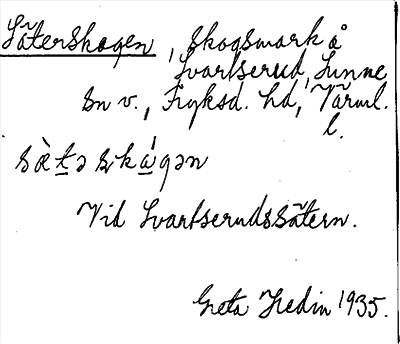 Sāterskogen, skogsmark å
Svartserud, Sunne
sn v., Fryksd. hd, Värml.
l.
sæ̀təskógən
Vid Svartserudssätern.
Greta Hedin 1935.